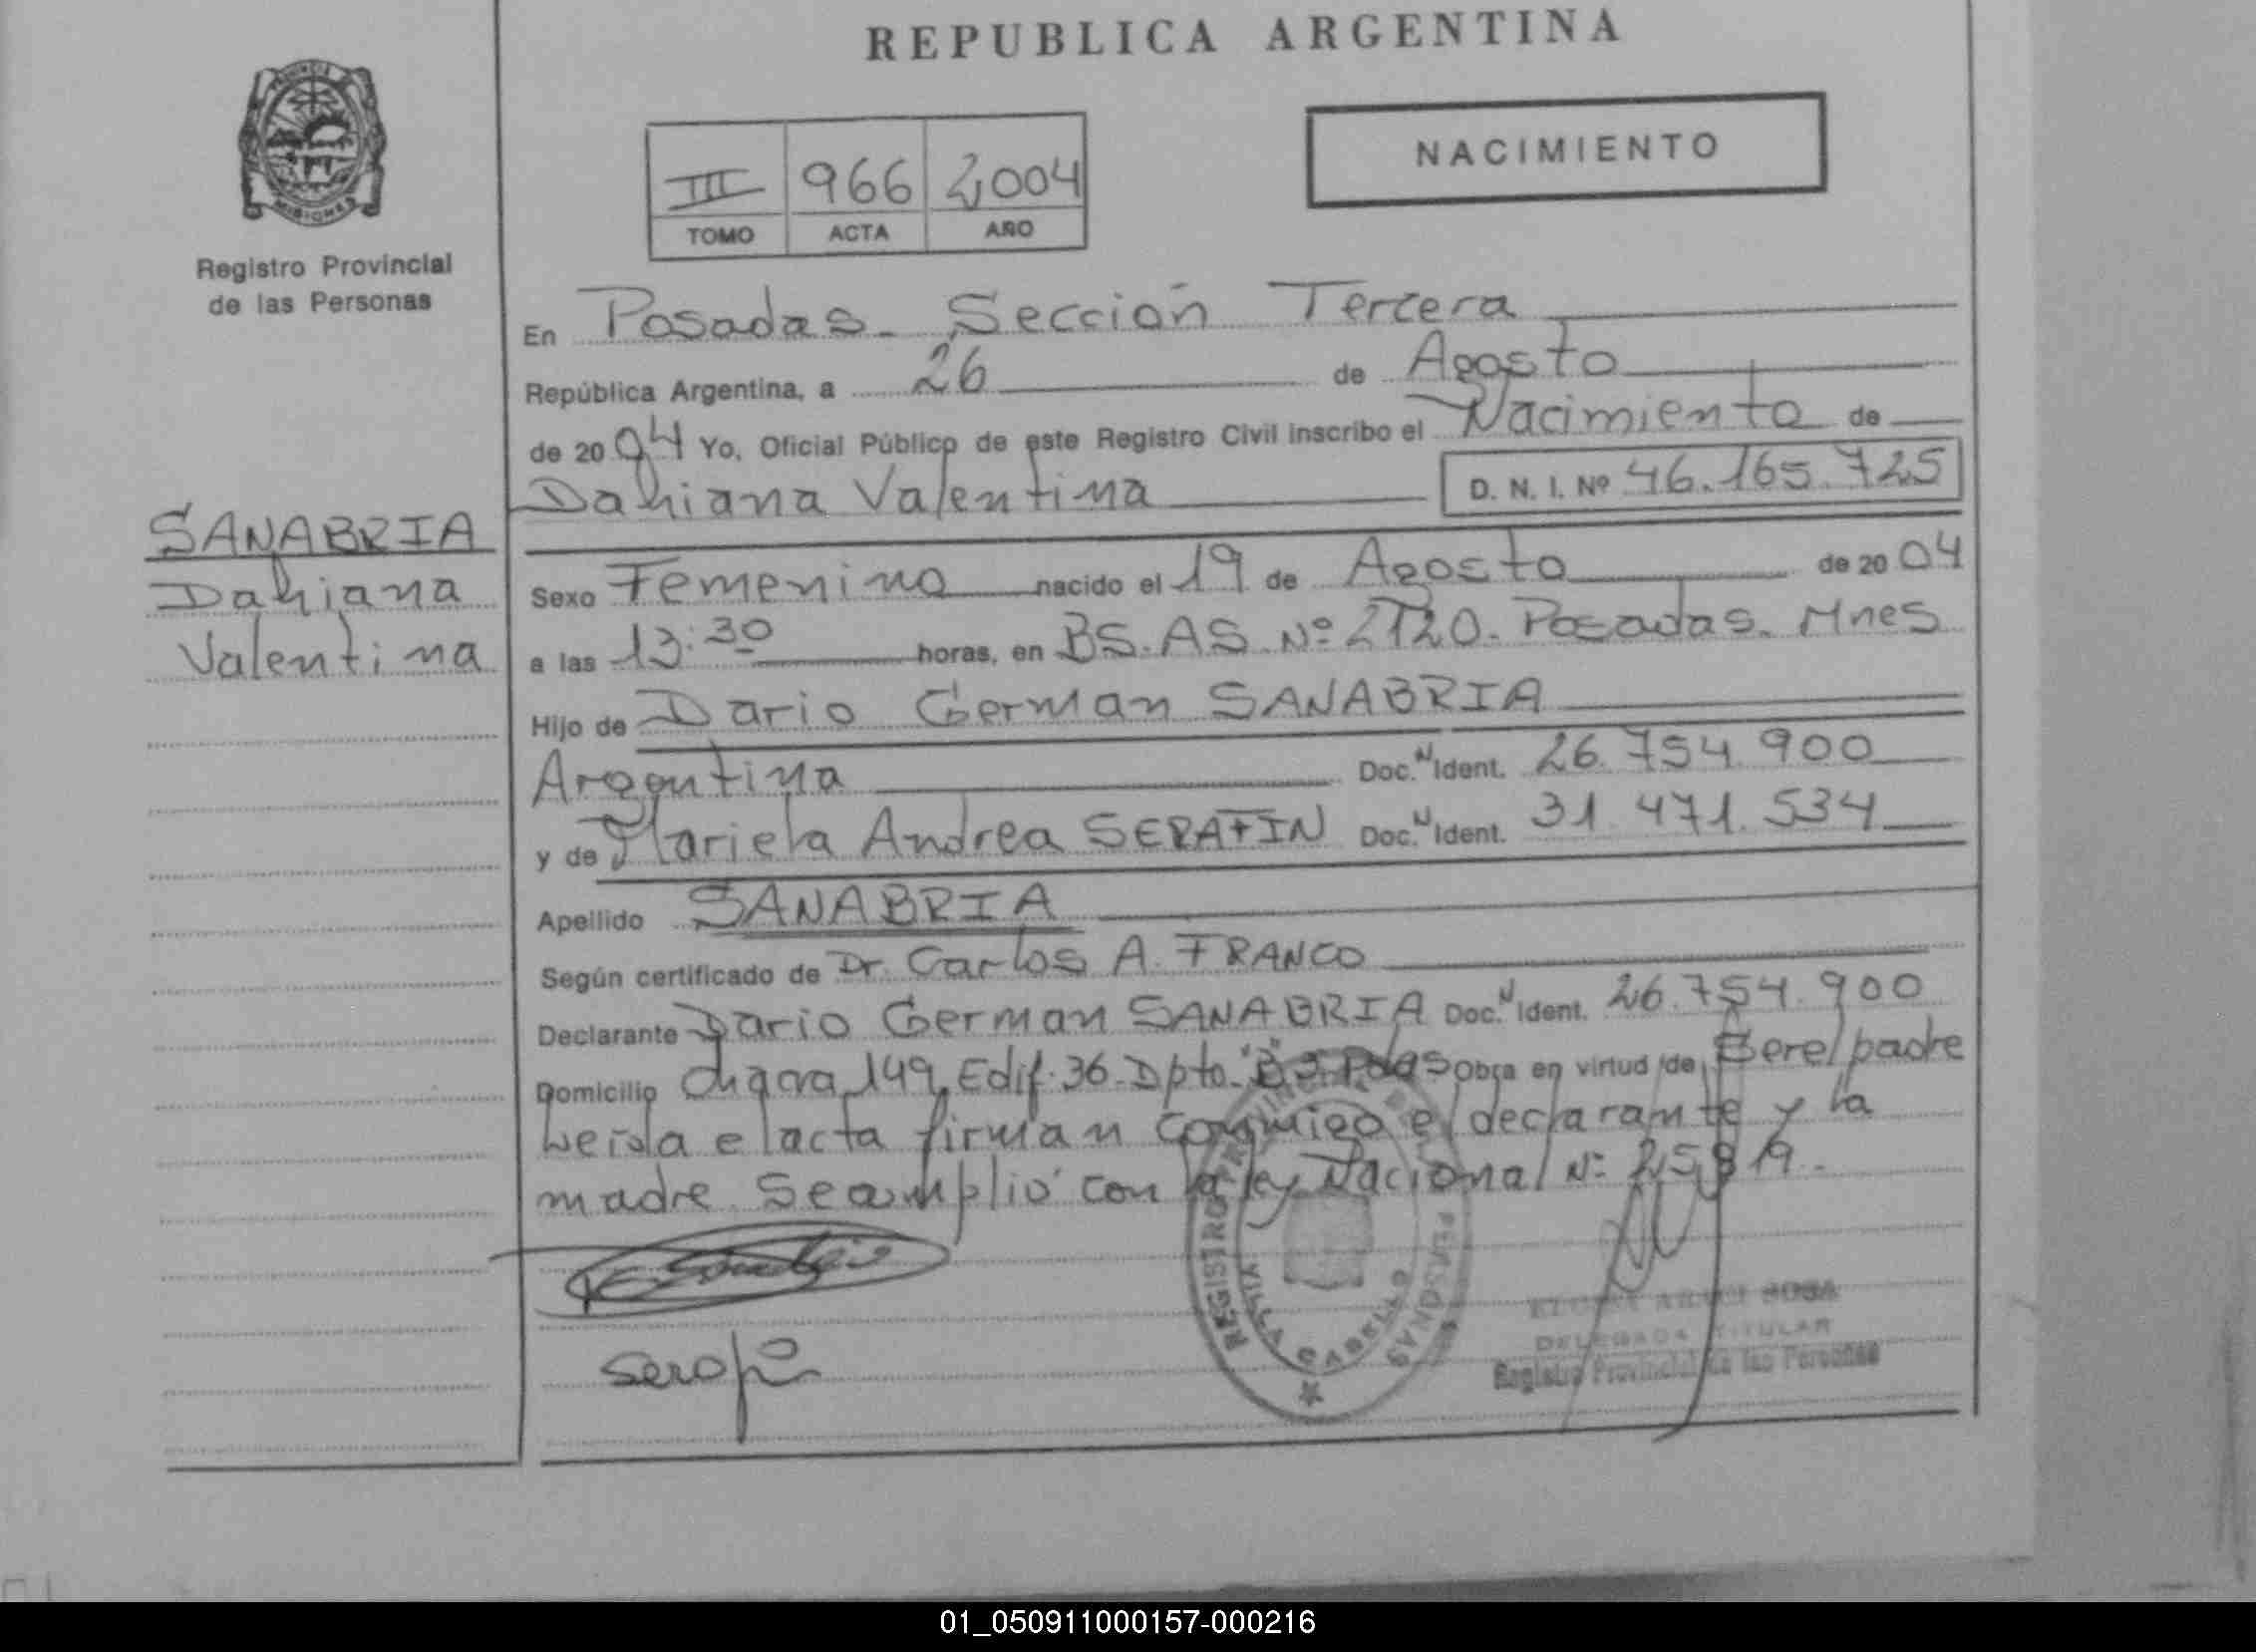 REPUBLICA ARGENTINA
PROVINCIA
MISIONES
Registro Provincial
de las Personas
III 966 2004
TOMO ACTA AÑO
NACIMIENTO
SANABRIA
Dahiana
Valentina
En Posadas - Sección Tercera
República Argentina, a 26 de Agosto
de 2004 Yo, Oficial Público de este Registro Civil inscribo el Nacimiento de
Dahiana Valentina D. N. I. Nº 46.165.725
Sexo Femenino nacido el 19 de Agosto de 2004
a las 13:30 horas, en BS.AS. Nº 2120. Posadas. Mnes
Hijo de Dario German SANABRIA
Argentina Doc. N Ident. 26.754.900
y de Mariela Andrea SERAFIN Doc. N Ident. 31.471.534
Apellido SANABRIA
Según certificado de Dr. Carlos A. FRANCO
Declarante Dario German SANABRIA Doc. N Ident. 26.754.900
Domicilio Chacra 149, Edif. 36. Dpto. "B" Pdas Obra en virtud de Sere/padre
Leida el acta firman conmigo el declarante y la
madre. Se amplió con la ley Nacional Nº 25819.
Serafin
REGISTRO PROVINCIAL DE LAS PERSONAS
VILLA CABELLO
SOSA
DELEGADA TITULAR
Registro Provincial de las Personas
01_050911000157-000216